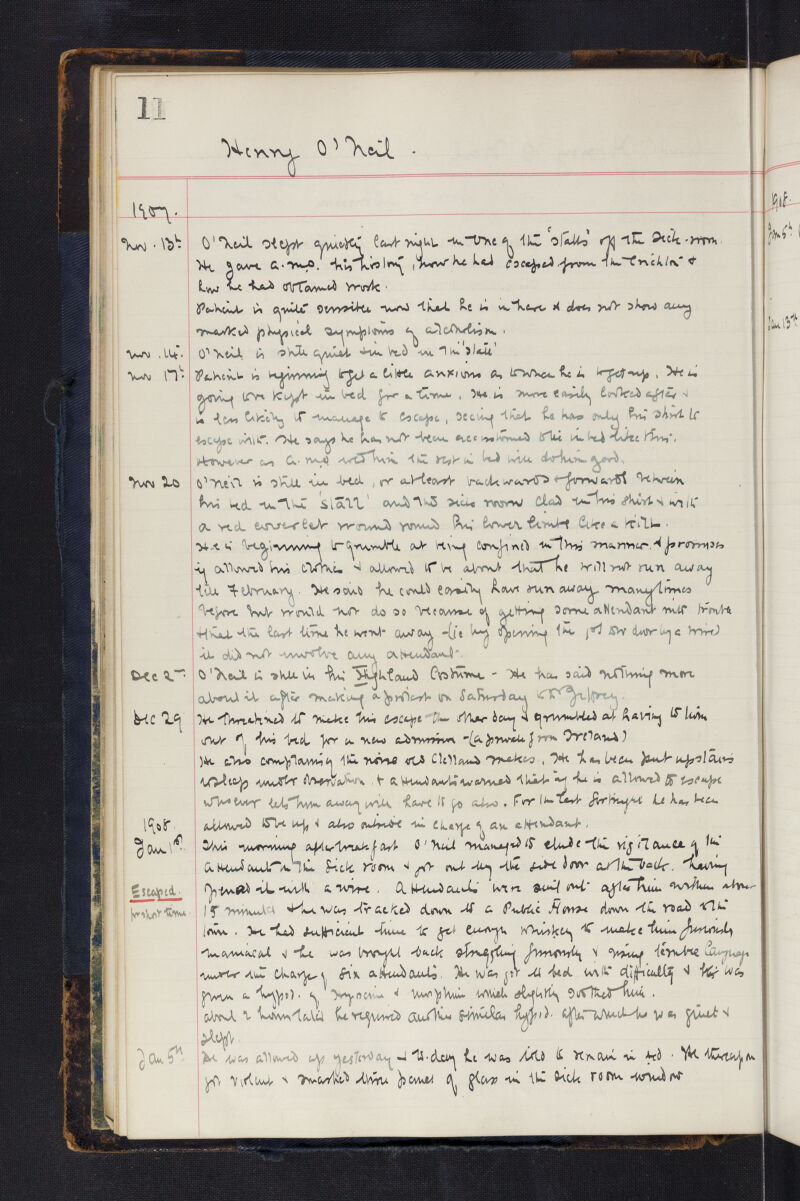 11
Henny O'Neil.
1907.
Nov. 13th O'Neil slept quietly last night in one of the 'stalls' off the sick-room.
He gave a.m.o. his history, how he had escaped from the Crichton &
how he had obtained work.
Patient is quite sensible now that he is in here & does not show any
marked physical symptoms of alcoholism.
Nov. 14. O'Neil is still quiet & in bed in the 'stall'
Nov 17th Patient is beginning to get a little anxious as to when he is to get up. He is
going to be kept in bed for a time. He is more easily looked after &
is less likely to manage to escape, seeing that he has only his shirt to
escape with. He says he has not been accustomed to lie in bed like this.
However as a.m.o. told him the rest in bed will do him good.
Nov 20 O'Neil is still in bed, or at least backwards & forwards between
his bed in the 'stall' and the sick room clad in his shirt & with
a red coverlet wound round his lower limbs like a kilt.
He is beginning to grumble at being confined in this manner & promises
if allowed his clothes & allowed to be about that he will not run away
till February. He said he could easily have run away many times
before but would not do so because of getting some attendant into trouble
& that the last time he went away - (ie by opening the door by a wire)
it did not involve any attendant.
Dec 2nd O'Neil is still in his Highland Costume - He has said nothing more
about it after making a protest on Saturday to Dr
Dec 29 He threatened to make his escape the other day & grumbled at having to turn
out of his bed for a new admission - (a private from Ireland)
He also complaining the noise old Clelland makes. He has been put upstairs
to sleep under observation & attendants warned that if he is allowed to escape
whoever lets him away will have to go also. For the last fortnight he has been
1908. allowed to be up & also outside in charge of an attendant.
Jan 1st. This morning after breakfast O'Neil managed to elude the vigilance of the
attendant in the Sick room & got out by the side door at the back, having
Escaped. opened it with a wire. Attendants were sent out after him within about
for short time. 15 minutes & he was tracked down to a Public House down the road to the
town. He had sufficient time to get enough whiskey to make him furiously
maniacal & he was brought back struggling furiously & using terrible language
under the charge of six attendants. He was got to bed with difficulty & was
given a hypod. of hyoscine & morphin which slightly soothed him.
about 2 hours later he required another similar hypod. after which he was quiet &
slept.
Jan 5th He was allowed up yesterday & to-day he was told to remain in bed. He thereupon
got violent & smashed three panes of glass in the sick room window
1908.
Jan 5th
Jan 13th